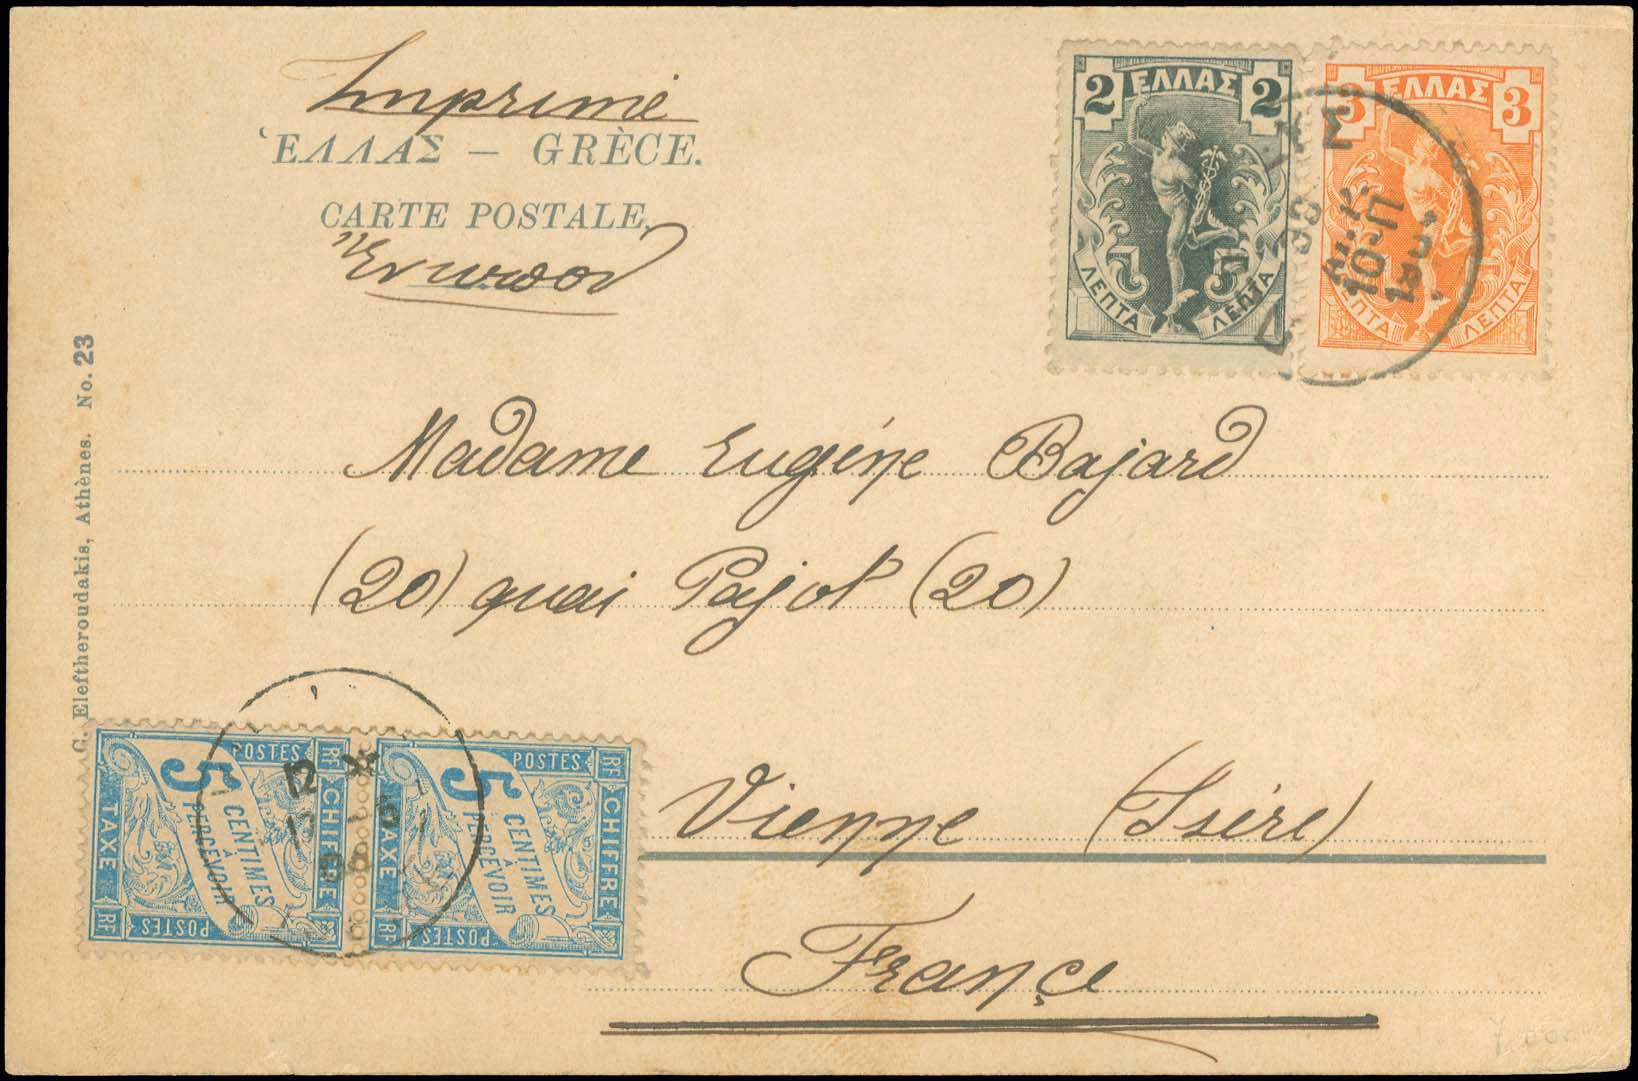 Imprimé
ἙΛΛΑΣ — GRÈCE.
CARTE POSTALE.
G. Eleftheroudakis, Athènes. No. 23
2 ΕΛΛΑΣ 2
ΛΕΠΤΑ ΛΕΠΤΑ
3 ΕΛΛΑΣ 3
ΛΕΠΤΑ ΛΕΠΤΑ
Madame Eugéne Bajard
(20) quai Pajot (20)
Vienne (Isére)
France
POSTES RF
5 CENTIMES
À PERCEVOIR
CHIFFRE
TAXE
POSTES RF
POSTES RF
5 CENTIMES
À PERCEVOIR
CHIFFRE
TAXE
POSTES RF